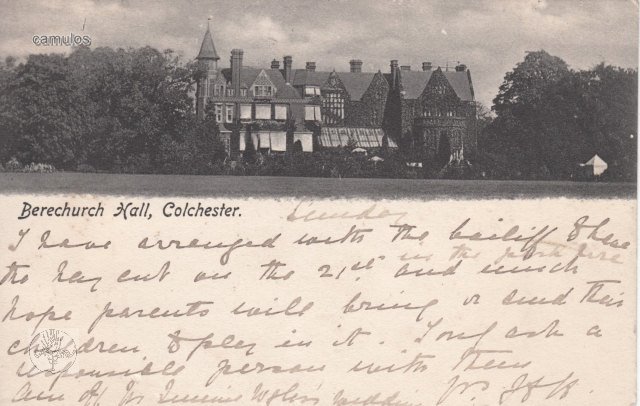 camulos
Berechurch Hall, Colchester.
Sunday
I have arranged with the bailiff to have
the hay cut on the 21st in the park here and much
hope parents will bring or send their
children to play in it. I only ask a
responsible person with them
Am off